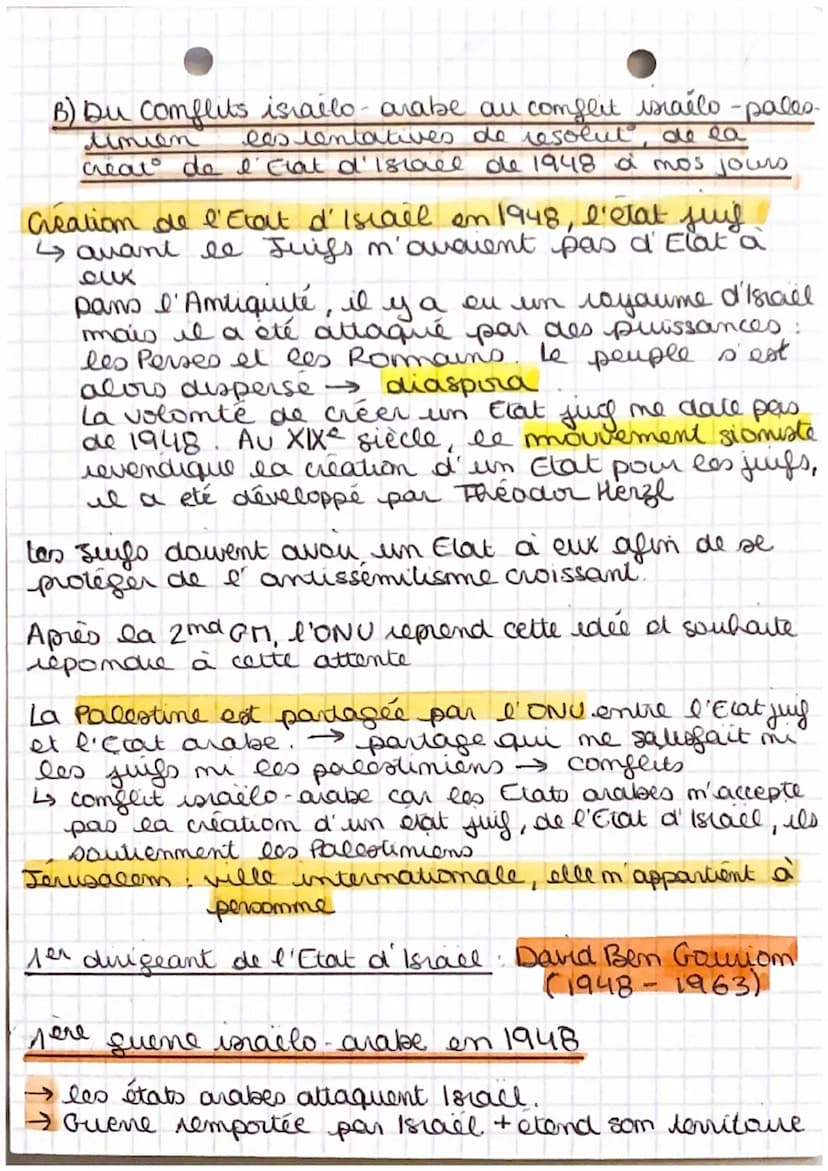 B) Du Conflits israélo-arabe au conflit israélo-pales-
tinien les tentatives de resolut°, de la
créat° de l'Etat d'Israël de 1948 à nos jours
Création de l'Etat d'Israël en 1948, l'état juif
↳ avant le Juifs n'avaient pas d'Etat à
eux
Dans l'Antiquité, il y a eu un royaume d'Israël
mais il a été attaqué par des puissances :
les Perses et les Rommains. Le peuple s'est
alors dispersé → diaspora
La volonté de créer un Etat juif ne date pas
de 1948. Au XIXe siècle, le mouvement sioniste
revendique la création d'un Etat pour les juifs,
il a eté développé par Théodor Herzl
Les Juifs doivent avoir un Etat à eux afin de se
protéger de l'antissémitisme croissant.
Après la 2nd GM, l'ONU reprend cette idée et souhaite
répondre à cette attente
La Palestine est partagée par l'ONU entre l'Etat juif
et l'Etat arabe. → partage qui ne satisfait ni
les juifs ni les palestiniens → conflits
↳ conflit israëlo-arabe car les Etats arabes n'accepte
pas la création d'un état juif, de l'Etat d'Israël, ils
soutiennent les Palestiniens
Jérusalem : ville internationale, elle n'appartient à
personne
1er dirigeant de l'Etat d'Israël : David Ben Gourion
(1948 - 1963)
1ère guerre israëlo-arabe en 1948
→ les états arabes attaquent Israël.
→ Guerre remportée par Israël + étend son territoire